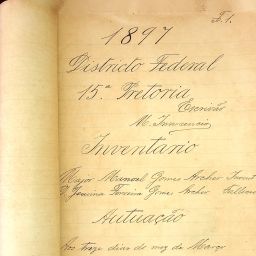 F. 1.
1897
Districto Federal
15ª Pretoria
Escrivão
M. Innocencio
Inventario
Major Manoel Gomes Archer
D. Joanina Ferreira Gomes Archer
Autuação
Aos treze dias do mez de Março